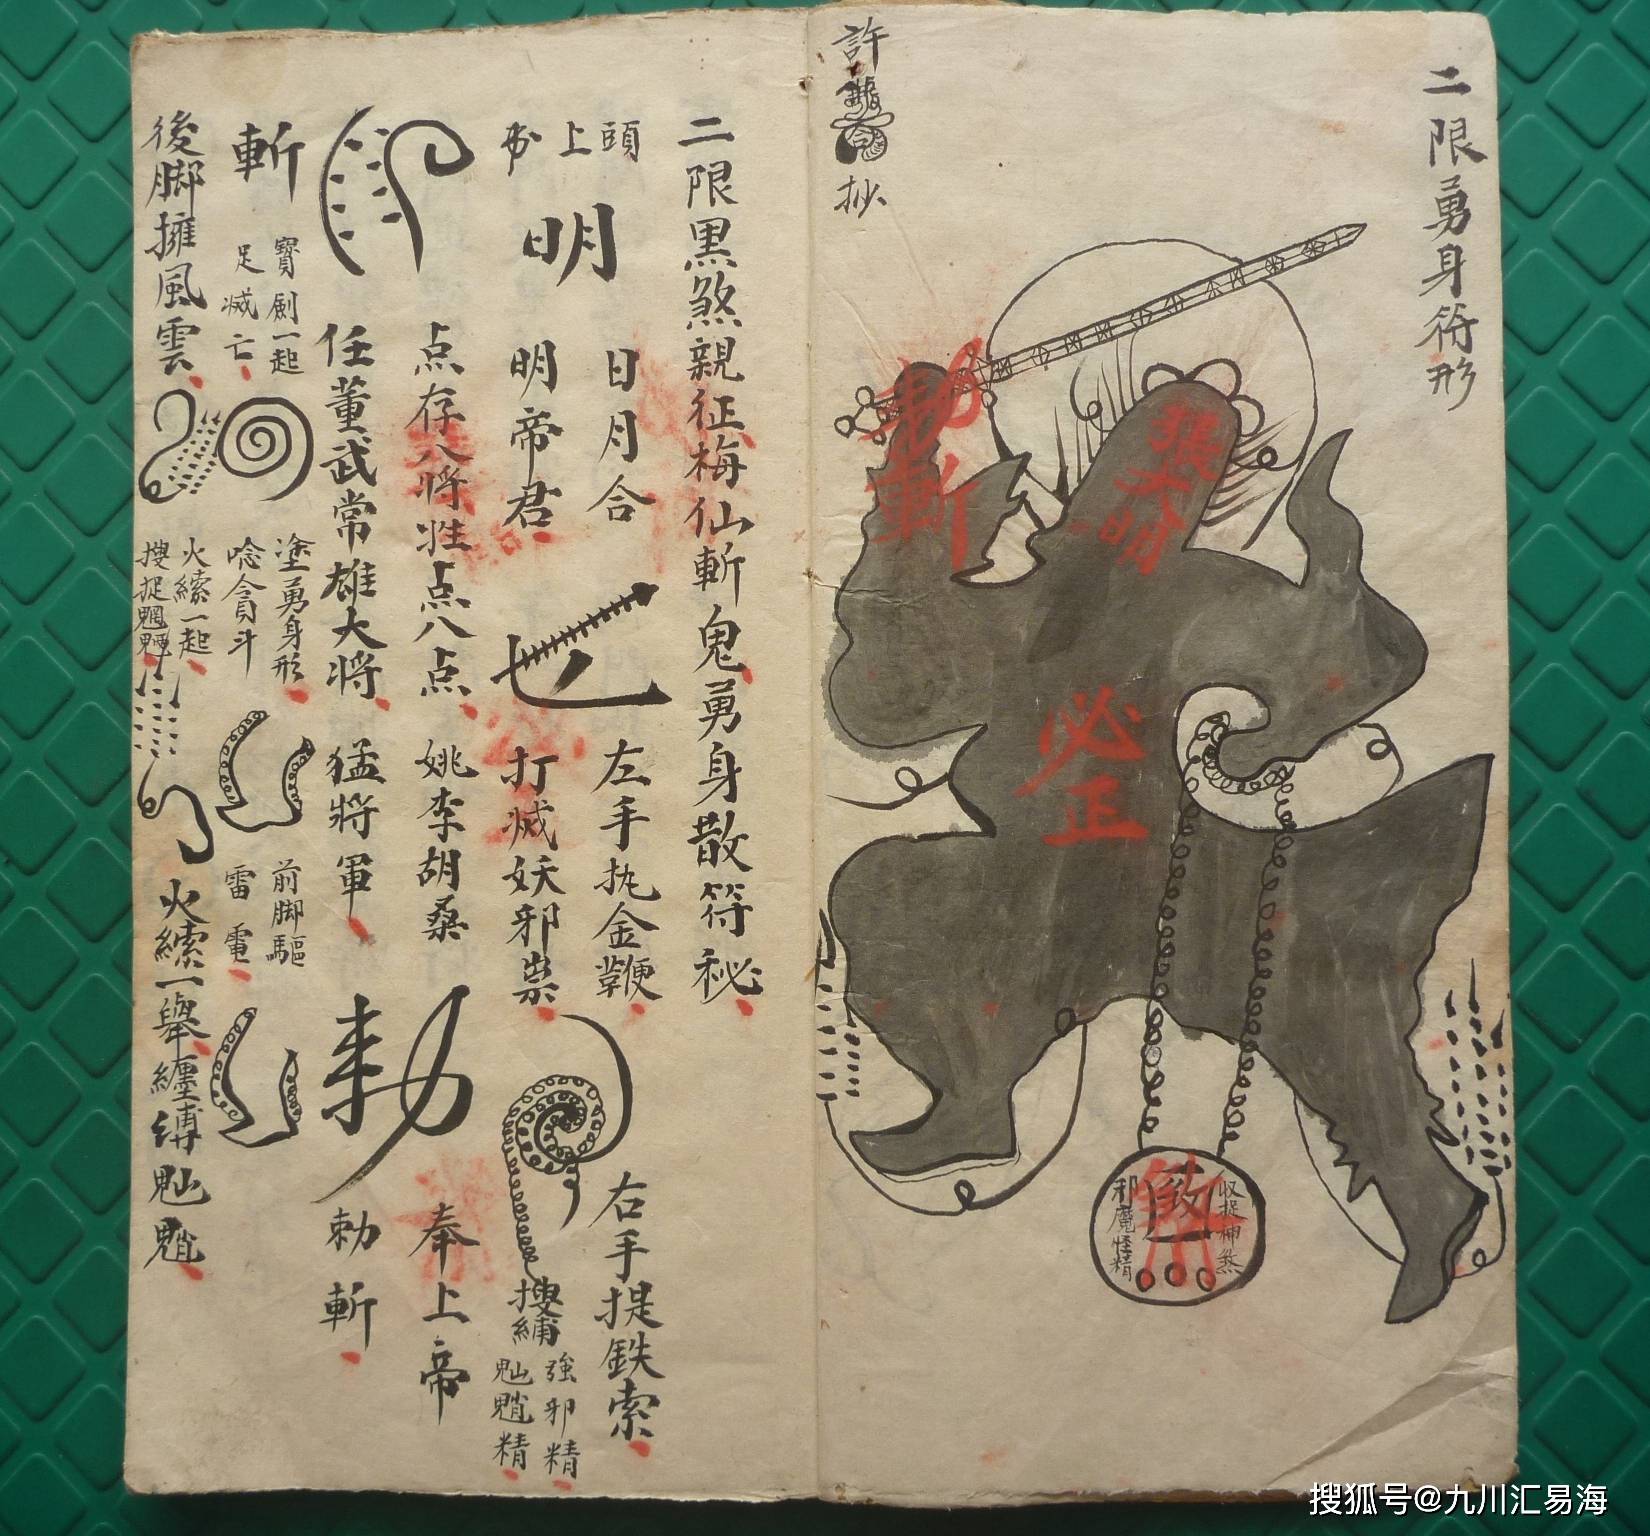 二限勇身符形
勅斬
張大明
必正
收捉神煞
邪魔怪精
許
抄
二限黑煞親征梅仙斬鬼勇身散符秘
頭上
明
日月合
明帝君
左手执金鞭
打滅妖邪祟
右手提鉄索
搜縛
強邪精
魈精
点存八將
点八点
姚李胡桑
奉上帝
任董武常雄大将
猛將軍
勅
勅斬
斬
寶劍一起
足滅亡
塗勇身形
唸貪斗
前脚驅
雷電
後脚擁風雲
火繀一起
搜捉魍魎
火繀一舉纏縛
搜狐号@九川汇易海